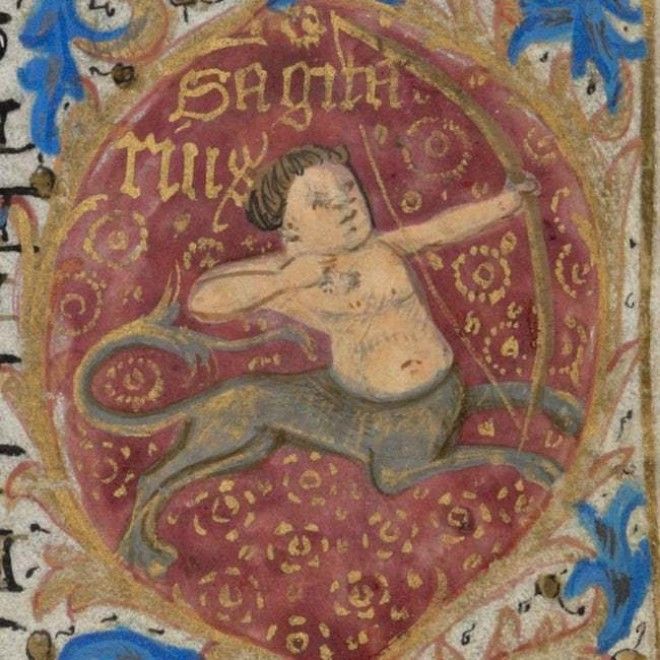 Sagitta
rius